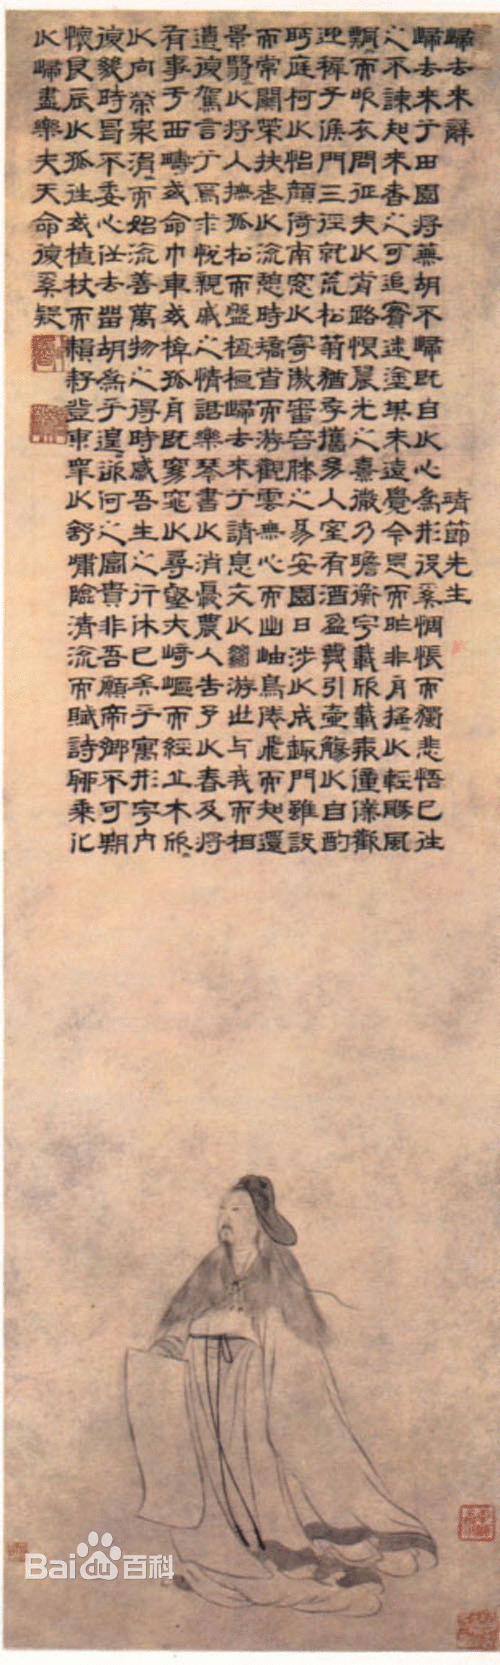 歸去來辭 靖節先生
歸去來兮田園將蕪胡不歸既自以心為形役奚惆悵而獨悲悟已往
之不諫知來者之可追實迷塗其未遠覺今是而昨非舟搖々以輕颺風
飄々而吹衣問征夫以前路恨晨光之熹微乃瞻衡宇載欣載奔僮僕歡
迎稚子候門三徑就荒松菊猶存攜幼入室有酒盈尊引壺觴以自酌
眄庭柯以怡顏倚南窗以寄傲審容膝之易安園日涉以成趣門雖設
而常關策扶老以流憩時矯首而游觀雲無心而出岫鳥倦飛而知還
景翳々以將入撫孤松而盤桓歸去來兮請息交以絕游世與我而相
遺復駕言兮焉求悅親戚之情話樂琴書以消憂農人告予以春及將
有事于西疇或命巾車或棹孤舟既窈窕以尋壑亦崎嶇而經丘木欣々
以向榮泉涓々而始流善萬物之得時感吾生之行休已矣乎寓形宇內
復幾時曷不委心任去留胡為乎遑々欲何之富貴非吾願帝鄉不可期
懷良辰以孤往或植杖而耘耔登東皋以舒嘯臨清流而賦詩聊乘化
以歸盡樂夫天命復奚疑
Bai du 百科